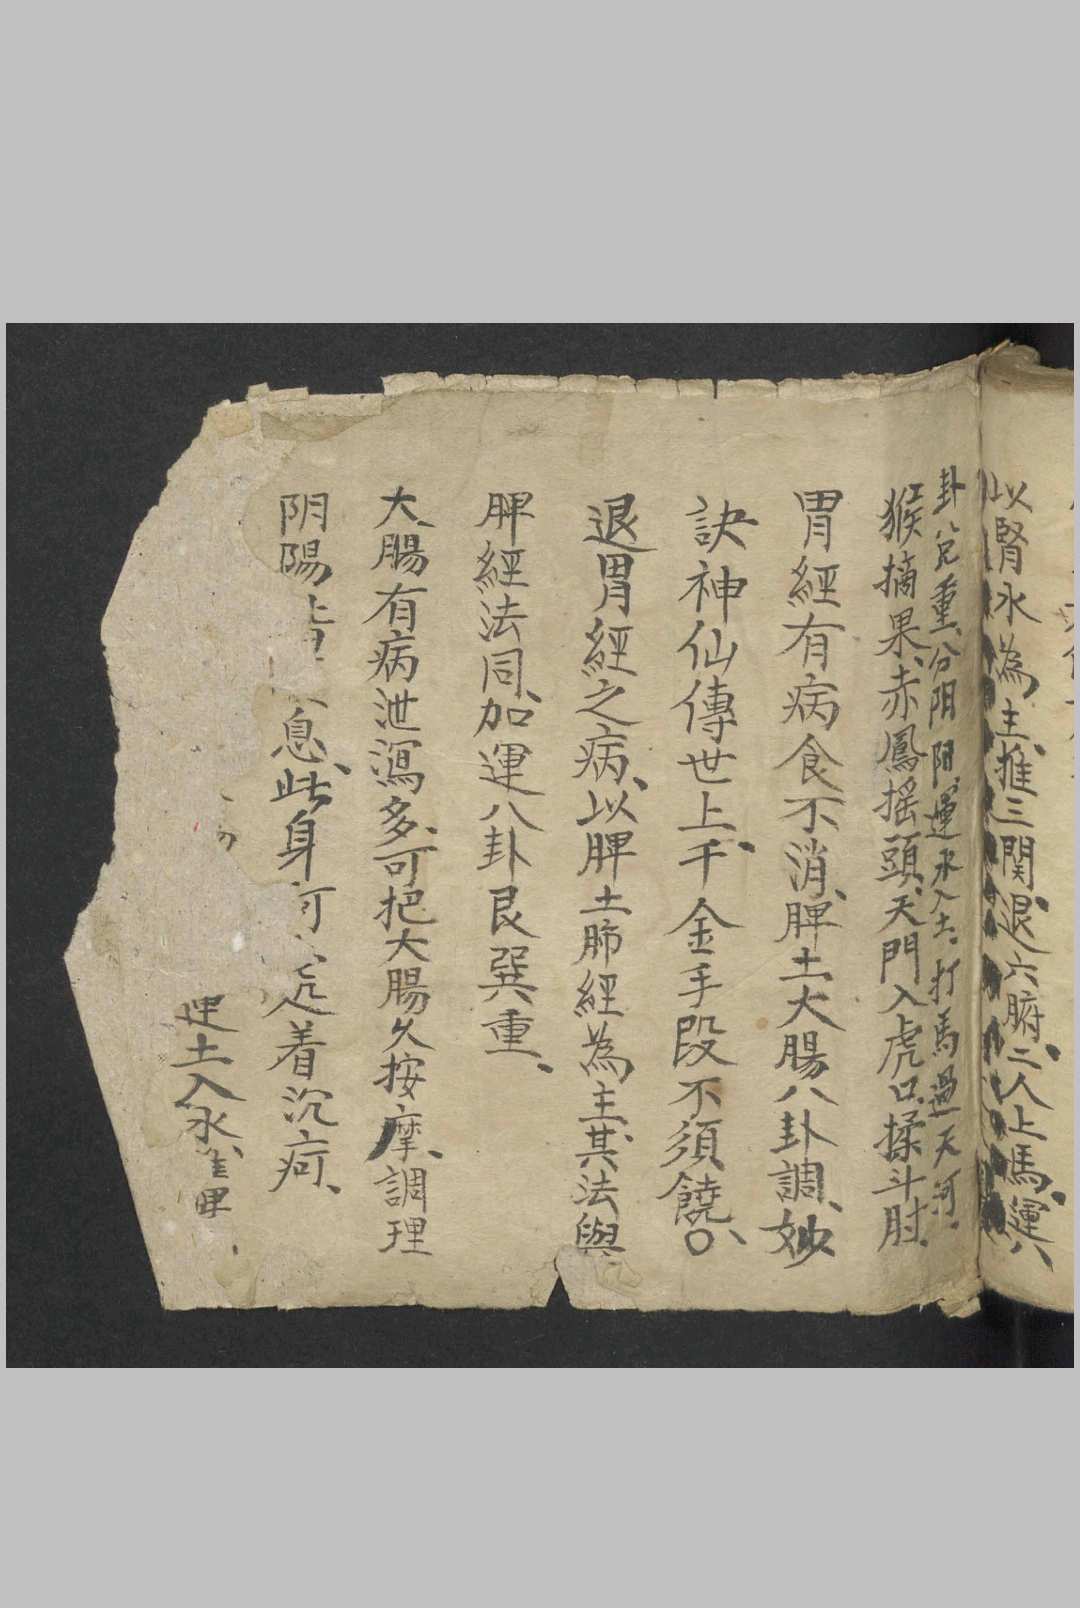 以腎水為主、推三關退六腑、二人上馬、運八
卦兌重、分阴阳、運水入土、打馬過天河、
猴摘果、赤鳳搖頭、天門入虎口、揉斗肘、
胃經有病食不消、脾土大腸八卦調、妙
訣神仙傳世上、千金手段不須饒、〇
退胃經之病、以脾土肺經為主、其法與
脾經法同、加運八卦艮巽重、
大腸有病泄瀉多、可把大腸久按摩、調理
阴陽 息、此身何處着沉疴、
運土入水、